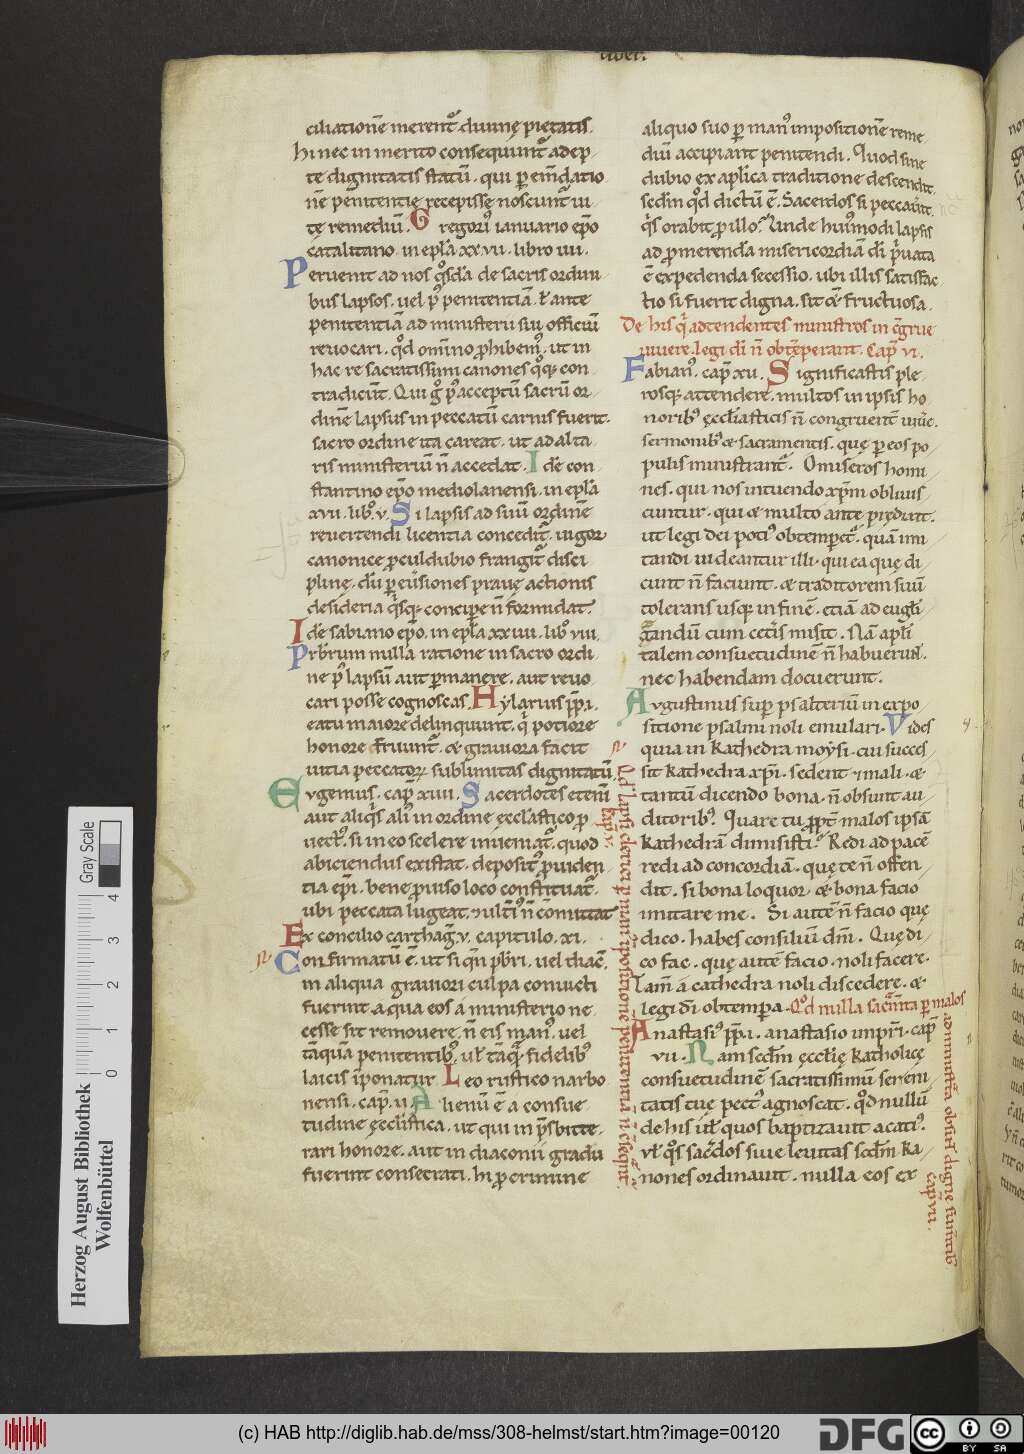 liber.
ciliationē merent᷑ diuinę pietatis.
hi nec in merito consequunt᷑ adep
tę dignitatis statū. qui per em̄datio
nē penitentię recepisse noscunt᷑ ui
tę remediū. Gregorꝰ ianuario ep̄o
catalitano. in epl̄a xxvii. libro iiii.
Peruenit ad nos qͦsdā de sacris ordini
bus lapsos. uel pꝰ penitentiā. ł ante
penitentiā ad ministerii sui officiū
reuocari. qd̄ om̄ino ꝓhibemꝰ. ut in
hac re sacratissimi canones qͦqꝫ con
tradicūt. Qui gͦ pꝰ acceptū sacrū or
dinē lapsus in peccatū carnis fuerit.
sacro ordine ita careat. ut ad alta
ris ministeriū n̄ accedat. Idē con
stantino ep̄o mediolanensi. in epl̄a
xvii. libͦ. v. Si lapsis ad suū ordinē
reuertendi licentia concedit᷑. uigor
canonice ꝓculdubio frangit᷑ disci
plinę. dū ꝑ reuersiones prauę actionis
desideria qͥsqꝫ concipe n̄ formidat.
Idē sabiano ep̄o. in epl̄a xxiiii. libͦ viii.
Prb̄rum nulla ratione in sacro ordi
ne pꝰ lapsū aut ꝑmanere. aut reuo
cari posse cognoscas. Hylarius pp̄. i.
eatu maiore delinquunt. qͦ potiore
honore fruunt᷑. & grauiora facit
uitia peccatoꝝ sublimitas dignitatū.
Evgenius. cap̄ xiiii. Sacerdotes etenī
aut aliqͥs aliꝰ in ordine ęcclastico ꝓ
uectꝰ. si in eo scelere inueniat᷑. quod
abiciendus existat. depositꝰ ꝓuiden
tia ep̄i. bene ꝓuiso loco constituat᷑.
ubi peccata lugeat. & ultiꝰ n̄ cōmittat
Ex concilio carthaḡ. v. capitulo. xi.
Confirmatū ē. ut si qn̄ prb̄ri. uel diac̄.
in aliqua grauiori culpa conuicti
fuerint. a qua eos a ministerio ne
cesse sit remouere. n̄ eis manꝰ. uel
tāquā penitentibꝰ. uł tāqͣ fidelibꝰ
laicis īponatur. Leo rustico narbo
nensi. cap̄. ii. Alienū ē a consue
tudine ęccl̄stica. ut qui in p̄sbite
rari honore. aut in diaconii gradū
fuerint consecrati. hi ꝓ crimine
Qd̄ lapsi clerici ꝑ manꝰ īpositionē penitentiā n̄ c̄seqnt᷑.
Cap̄ v.
aliquo suo ꝑ manꝰ impositionē reme
diū accipiant penitendi. Quod sine
dubio ex apl̄ica traditione descendit.
scdm̄ qd̄ dictū ē. Sacerdos si peccauit.
qͥs orabit ꝓ illo? Unde huiꝰmodi lapsis
ad ꝓmerendā misericordiā di᷑ pͥuata
ē expetenda secessio. ubi illis satisfac
tio si fuerit digna. sit & fructuosa.
De his qͥ adtendentes ministros in cōgrue
uiuere. legi di᷑ n̄ obtēperant. Cap̄ vi.
Fabianꝰ. cap̄ xii. Significastis ple
rosqꝫ attendere. multos in ipsis ho
noribꝰ ęccl̄iasticis n̄ congruent᷑ uiuē.
sermonibꝰ & sacramentis. quę ꝑ eos po
pulis ministrant᷑. O miseros homi
nes. qui nos intuendo xp̄m obliuis
cuntur. qui & multo ante pͥdixit.
ut legi dei potiꝰ obtemperet᷑. quā imi
tandi uideantur illi. qui ea quę di
cunt n̄ faciunt. & traditorem suū
tolerans usqꝫ in finē. etiā ad eugl̄i
zandū cum ceteris misit. Nā apl̄i
talem consuetudinē n̄ habuerunt.
nec habendam docuerunt.
Avgustinus suꝑ psalteriū in expo
sitione psalmi noli emulari. Vides
quia in kathedra moysi. cui succes
sit kathedra xp̄i. sedent & mali. &
tantū dicendo bona. n̄ obsunt au
ditoribꝰ. Quare tu ꝓpt᷑ malos ipsā
kathedrā dimisisti? Redi ad pacē
redi ad concordiā. quę te n̄ offen
dit. si bona loquor & bona facio
imitare me. Si autē n̄ facio quę
dico. habes consiliū dn̄i. Quę di
co fac. quę autē facio. noli facere.
Tam̄ a cathedra noli discedere. &
legi di᷑ obtempa. Qd̄ nulla sacͣm̄ta ꝑ malos
Anastasiꝰ pp̄. i. anastasio impr̄i. cap̄
vii. Nam scdm̄ ęcclię katholicę
consuetudinē sacratissimū sereni
tatis tuę pectꝰ agnoscat. qd̄ nullū
de his uł quos baptizauit acatiꝰ.
uł qͦs sac̄dos siue leuitas scdm̄ ka
nones ordinauit. nulla eos ex
administͣta obsūt digne sumētibꝰ.
Cap̄ vii.
Gray Scale
4
3
2
1
0
Herzog August Bibliothek
Wolfenbüttel
(c) HAB http://diglib.hab.de/mss/308-helmst/start.htm?image=00120
DFG
cc
BY SA